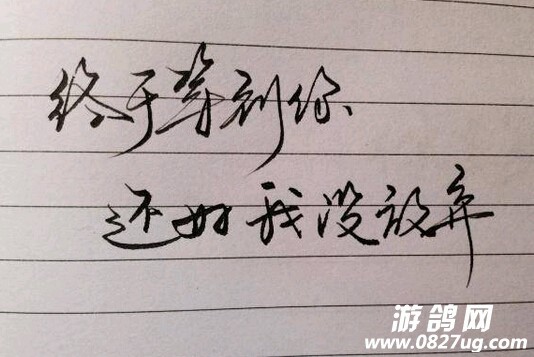 终于等到你
还好我没放弃
游鸽网
www.0827ug.com